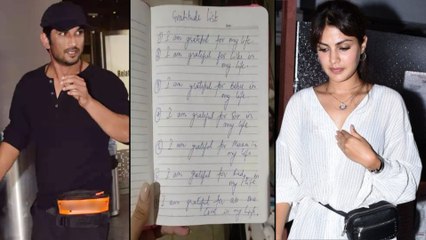 Gratitude List
① I am grateful for my life.
② I am grateful for in
my life.
③ I am grateful for in
my life
④ I am grateful for Sir in
my life.
⑤ I am grateful for in
my life
I am grateful for in
my life
I am grateful for
Love in my life.